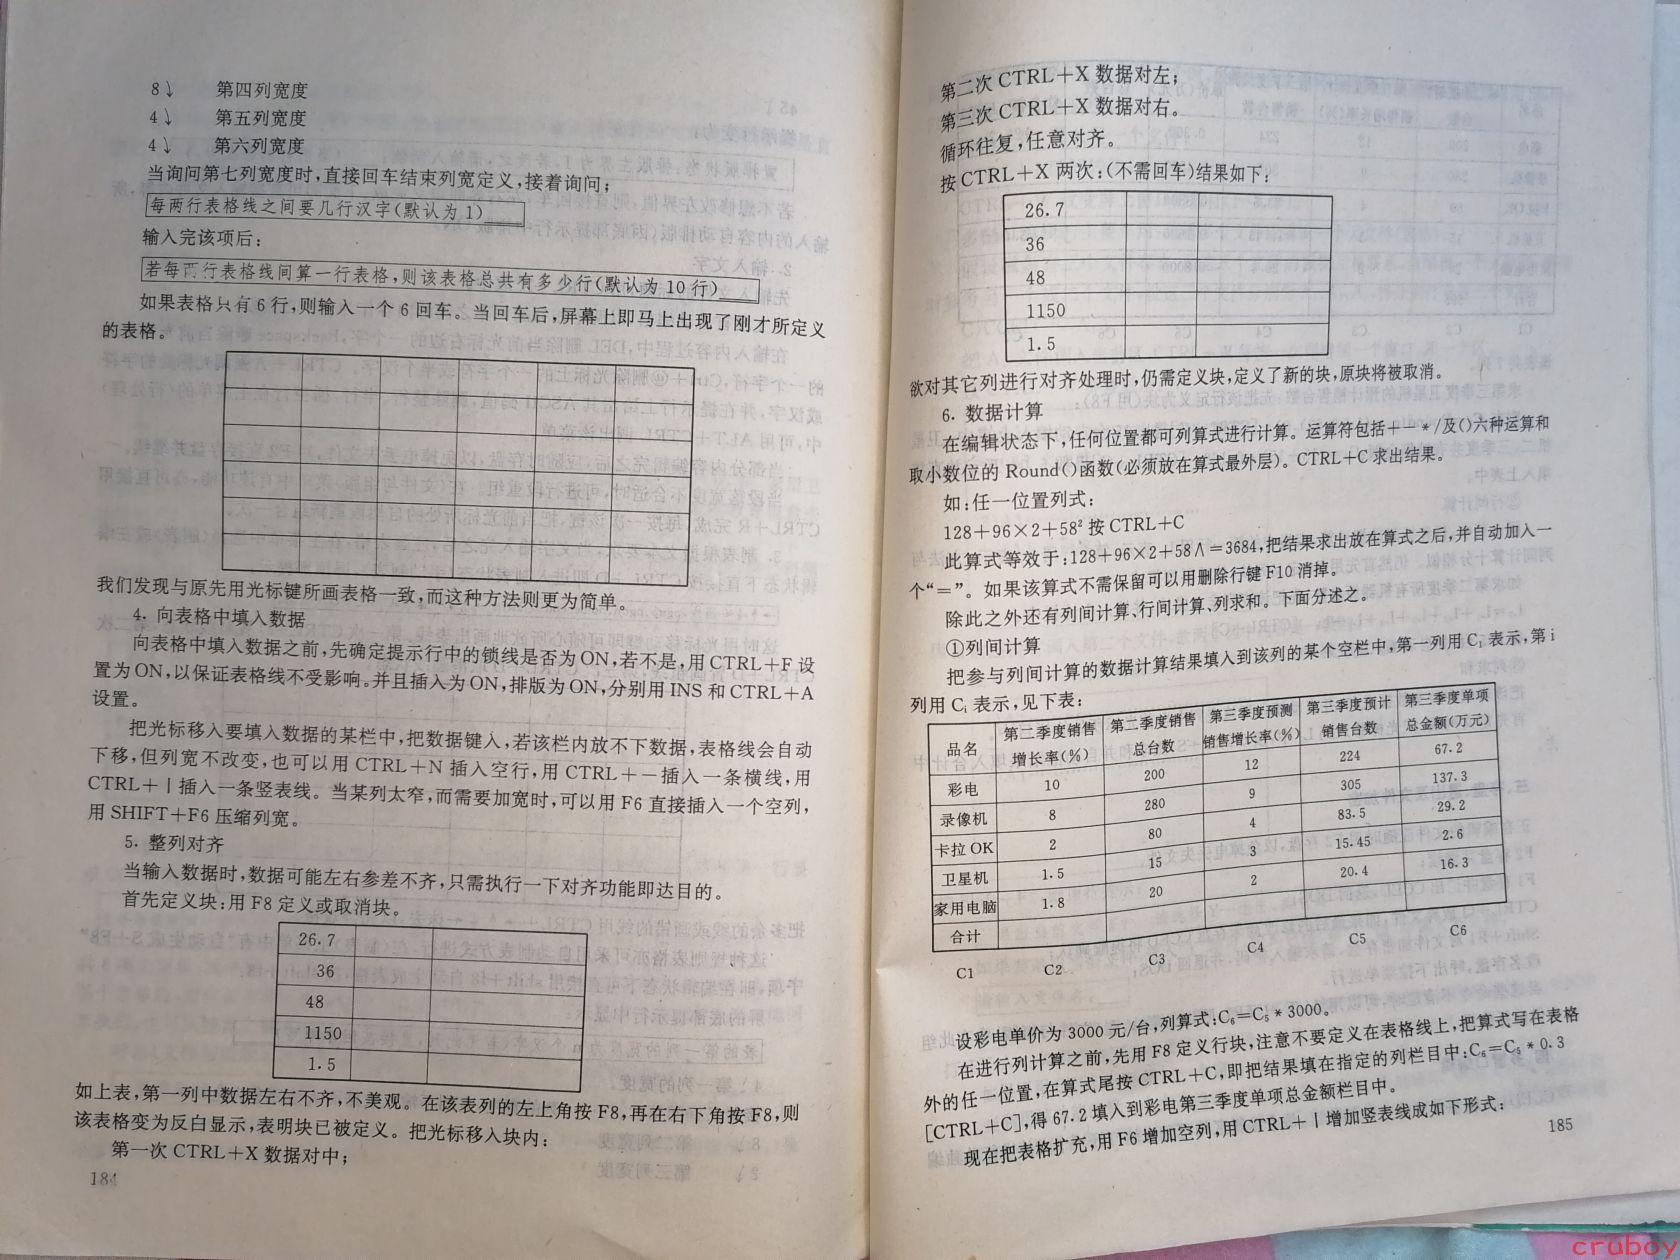 8↓ 第四列宽度
4↓ 第五列宽度
4↓ 第六列宽度
当询问第七列宽度时,直接回车结束列宽定义,接着询问;
每两行表格线之间要几行汉字(默认为1)
输入完该项后:
若每两行表格线间算一行表格,则该表格总共有多少行(默认为10行)
如果表格只有6行,则输入一个6回车。当回车后,屏幕上即马上出现了刚才所定义
的表格。
我们发现与原先用光标键所画表格一致,而这种方法则更为简单。
4. 向表格中填入数据
向表格中填入数据之前,先确定提示行中的锁线是否为ON,若不是,用CTRL+F设
置为ON,以保证表格线不受影响。并且插入为ON,排版为ON,分别用INS和CTRL+A
设置。
把光标移入要填入数据的某栏中,把数据键入,若该栏内放不下数据,表格线会自动
下移,但列宽不改变,也可以用CTRL+N插入空行,用CTRL+-插入一条横线,用
CTRL+|插入一条竖表线。当某列太窄,而需要加宽时,可以用F6直接插入一个空列,
用SHIFT+F6压缩列宽。
5. 整列对齐
当输入数据时,数据可能左右参差不齐,只需执行一下对齐功能即达目的。
首先定义块:用F8定义或取消块。
26.7
36
48
1150
1.5
如上表,第一列中数据左右不齐,不美观。在该表列的左上角按F8,再在右下角按F8,则
该表格变为反白显示,表明块已被定义。把光标移入块内:
第一次CTRL+X数据对中;
184
第二次CTRL+X数据对左;
第三次CTRL+X数据对右。
循环往复,任意对齐。
按CTRL+X两次:(不需回车)结果如下:
26.7
36
48
1150
1.5
欲对其它列进行对齐处理时,仍需定义块,定义了新的块,原块将被取消。
6. 数据计算
在编辑状态下,任何位置都可列算式进行计算。运算符包括+-*/及()六种运算和
取小数位的Round()函数(必须放在算式最外层)。CTRL+C求出结果。
如:任一位置列式:
128+96×2+58²按CTRL+C
此算式等效于:128+96×2+58∧=3684,把结果求出放在算式之后,并自动加入一
个“=”。如果该算式不需保留可以用删除行键F10消掉。
除此之外还有列间计算、行间计算、列求和。下面分述之。
①列间计算
把参与列间计算的数据计算结果填入到该列的某个空栏中,第一列用C₁表示,第i
列用Cᵢ表示,见下表:
品名 第二季度销售增长率(%) 第二季度销售总台数 第三季度预测销售增长率(%) 第三季度预计销售台数 第三季度单项总金额(万元)
彩电 10 200 12 224 67.2
录像机 8 280 9 305 137.3
卡拉OK 2 80 4 83.5 29.2
卫星机 1.5 15 3 15.45 2.6
家用电脑 1.8 20 2 20.4 16.3
合计
C1 C2 C3 C4 C5 C6
设彩电单价为3000元/台,列算式:C₆=C₅*3000。
在进行列计算之前,先用F8定义行块,注意不要定义在表格线上,把算式写在表格
外的任一位置,在算式尾按CTRL+C,即把结果填在指定的列栏目中:C₆=C₅*0.3
[CTRL+C],得67.2填入到彩电第三季度单项总金额栏目中。
现在把表格扩充,用F6增加空列,用CTRL+|增加竖表线成如下形式:
185
cruboy